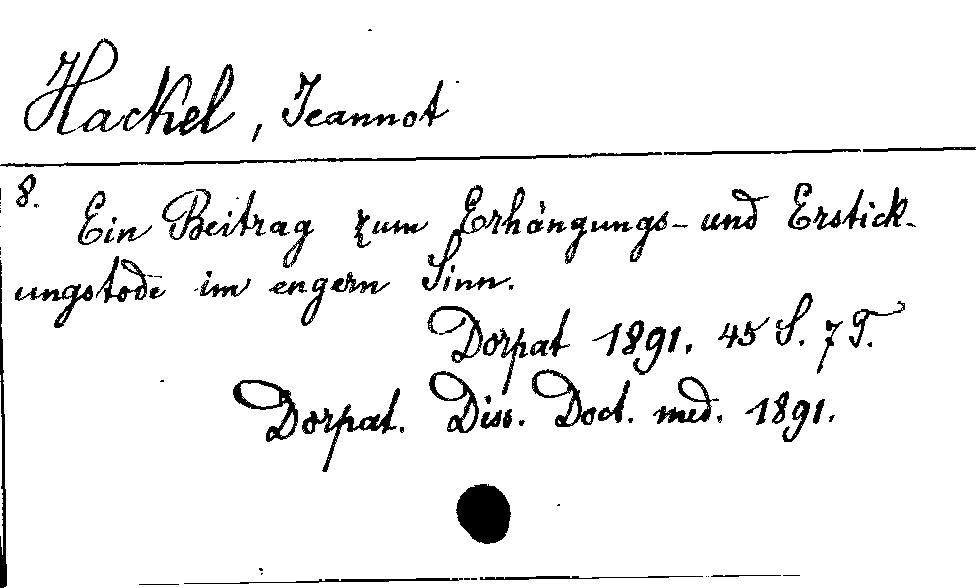 Hackel, Jeannot
8.
Ein Beitrag zum Erhängungs- und Erstick-
ungstode im engern Sinn.
Dorpat 1891. 45 S. 7 T.
Dorpat. Diss. Doct. med. 1891.